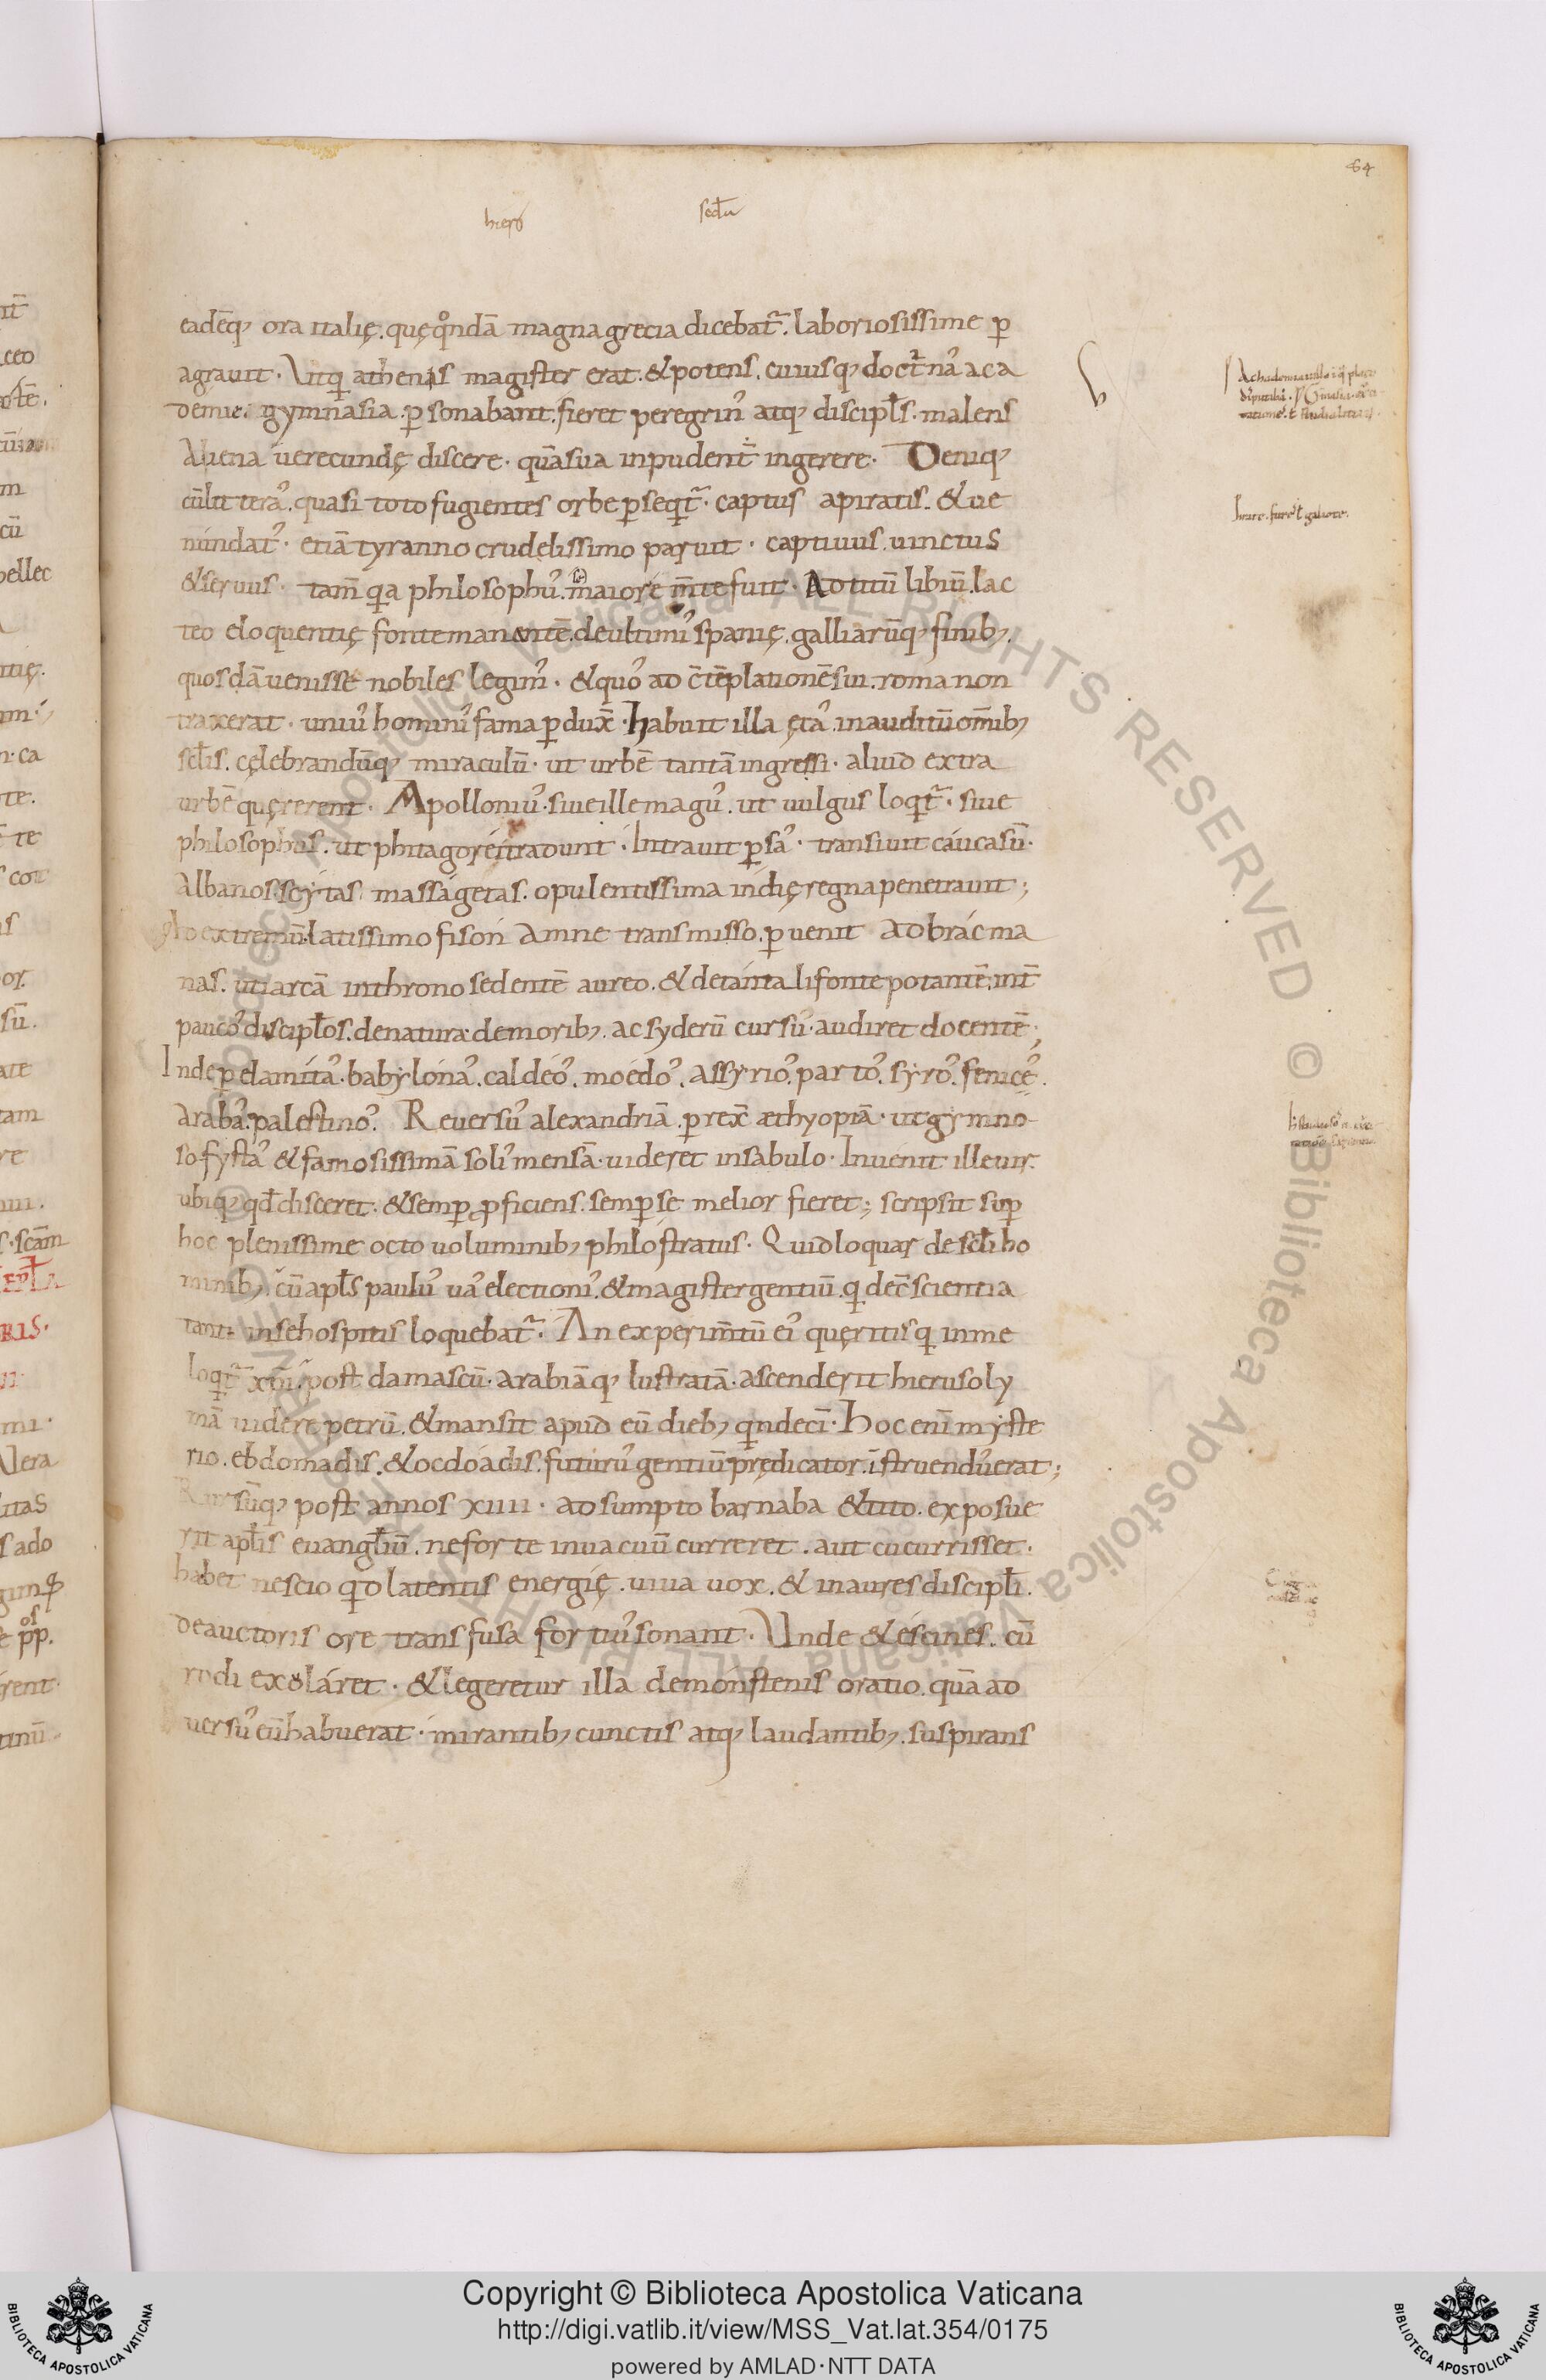 64
hiero
eadēq; ora italię. quę qͦndā magna grecia dicebat̃. laboriosissime ꝑ
agrauit. Ut qͥ athenis magister erat. & potens. cuiusq; doct̃nas̓ aca
demie. gymnasia. ꝑsonabant. fieret peregrin̓ atq; discipl̄s. malens
Aliena uerecundę discere. quā sua inpudent̃ ingerere. Deniq;
cū litteras̓. quasi toto fugientes orbe ꝑseqͥt̃. captus apiratis. & ue
nundat̓. etiā tyranno crudelissimo paruit. captiuus. uinctus
& seruus. tam̄ qͥa philosophus̓. maiore m̄te fuit. Ad titū libiū. lac
teo eloquentię fonte manantē. de ultimis̓ spanię. galliarūq; finib;.
quosdā uenisse nobiles legim̓. & quos̓ ad c̄tēplationē sui. roma non
traxerat. unius̓ hominis̓ fama ꝑdux̄. Habuit illa ętas̓. inauditū om̄ib;
sc̄lis. cęlebrandūq; miraculū. ut urbē tantā ingressi. aliud extra
urbē quęrerent. Apollonius̓. siue ille magus̓. ut uulgus loqͥt̃. siue
philosophus. ut phitagorei tradunt. Intrauit ꝑsas̓. transiuit cáucasū.
Albanos. scýtas. masságetas. opulentissima indię regna penetrauit;
Ad extremū. latissimo fisón amne transmisso. ꝑuenit ad brácma
nas. ut iarcā in throno sedentē aureo. & detántali fonte potantē. int̄
paucos̓ discipl̄os. de natura. de morib;. ac syderū cursū. audiret docentē;
Inde ꝑ elamítas̓. babylónas̓. caldéos̓. moédos̓. assyrios̓. partos̓. sýros̓. fenices̓.
arabas̓. palestinos̓. Reuersus̓ alexandriā. ꝑrex̄ æthyopiā. ut gýmno-
sofystas̓ & famosissimā solis̓ mensā. uideret in sabulo. Inuenit ille uir.
ubiq; qd̄ disceret. & semꝑ ꝓficiens. semꝑ se melior fieret; scripsit suꝑ
hoc plenissime octo uoluminib; philostratus. Quid loquar de scl̄i ho
minib;. cū apl̄s paulus̓ uas̓ electionis̓. & magister gentiū. qͥ dec̄scientia
tanti in se hospitis loquebat̃. An experim̄tū eius̓ quęritis qͥ in me
loqͥt̃ xp̄i. post damascū. arabiāq; lustratā. ascenderit hierusoly
mā uidere petrū. & mansit apud eū dieb; qͥndecī. Hoc enī mýste
rio. ebdomadis. & ocdóadis. futurus̓ gentiū prędicator. īstruendus̓ erat;
Rursūq; post annos xiiii. adsumpto barnaba & tito. exposue
rit apl̄is euangl̄iū. ne forte in uacuū curreret. aut cucurrisset.
habet nescio qͥd latentis energię. uiua uox. & in aures discipl̄i.
de auctoris ore transfusa fortius̓ sonant. Unde & éscines. cū
rodi exoláret. & legeretur illa demónstenis oratio. quā ad
uersus̓ eū habuerat. mirantib; cunctis atq; laudantib;. suspirans
Copyright © Biblioteca Apostolica Vaticana
http://digi.vatlib.it/view/MSS_Vat.lat.354/0175
powered by AMLAD·NTT DATA
BIBLIOTECA APOSTOLICA VATICANA
BIBLIOTECA APOSTOLICA VATICANA